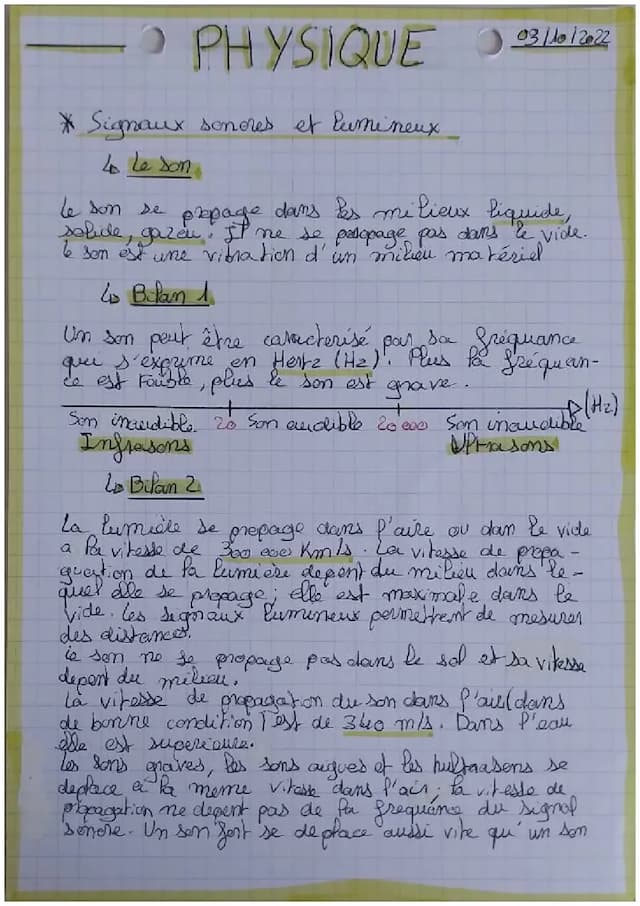 PHYSIQUE
03/10/2022
* Signaux sonores et lumineux
↳ Le son
Le son se propage dans les milieux liquide,
solide, gazeu. Il ne se propage pas dans le vide.
Le son est une vibration d'un milieu matériel
↳ Bilan 1
Un son peut être caracterisé par sa fréquance
qui s'exprime en Hertz (Hz). Plus la fréquan-
ce est Faible, plus le son est grave.
(Hz)
Son inaudible 20 Son audible 20 000 Son inaudible
Infrasons Ultrasons
↳ Bilan 2
La lumière se propage dans l'aire ou dan le vide
a la vitesse de 300 000 Km/s. La vitesse de propa-
guation de la lumière depent du milieu dans le-
quel elle se propage; elle est maximale dans le
vide. Les signaux lumineux permettent de mesurer
des distances.
Le son ne se propage pas dans le sol et sa vitesse
depent du milieu.
La vitesse de propagation du son dans l'air (dans
de bonne condition) est de 340 m/s. Dans l'eau
elle est superieure.
Les sons graves, les sons aigues et les se
deplace à la meme vitesse dans l'air; la vitesse de
propagation ne depent pas de la frequence du signal
sonore. Un son fort se deplace aussi vite qu'un son